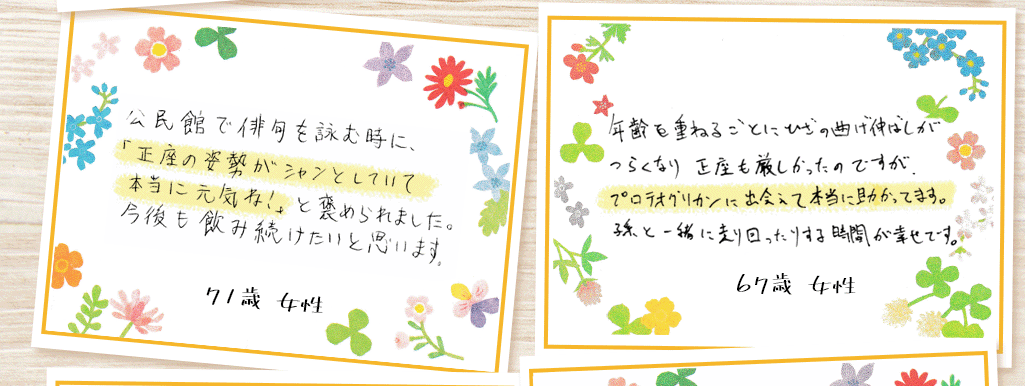 公民館で俳句を詠む時に、
「正座の姿勢がシャンとしていて
本当に元気ね！」と褒められました。
今後も飲み続けたいと思います。
71歳 女性
年齢を重ねるごとにひざの曲げ伸ばしが
つらくなり 正座も厳しかったのですが、
プロテオグリカンに出会えて本当に助かってます。
孫と一緒に走り回ったりする時間が幸せです。
67歳 女性